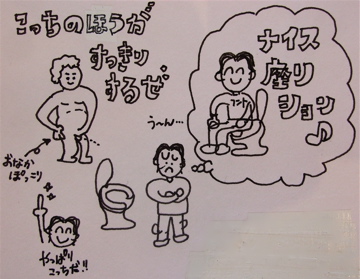 こっちのほうが
すっきり
するぜ
ナイス
座り
ション
う〜ん…
おなか
ぽっこり
やっぱり
こっちだ!!